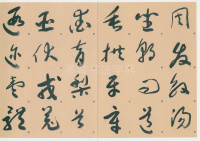 周發殷湯
坐朝問道
垂拱平章
愛育黎首
臣伏戎羌
遐邇壹體